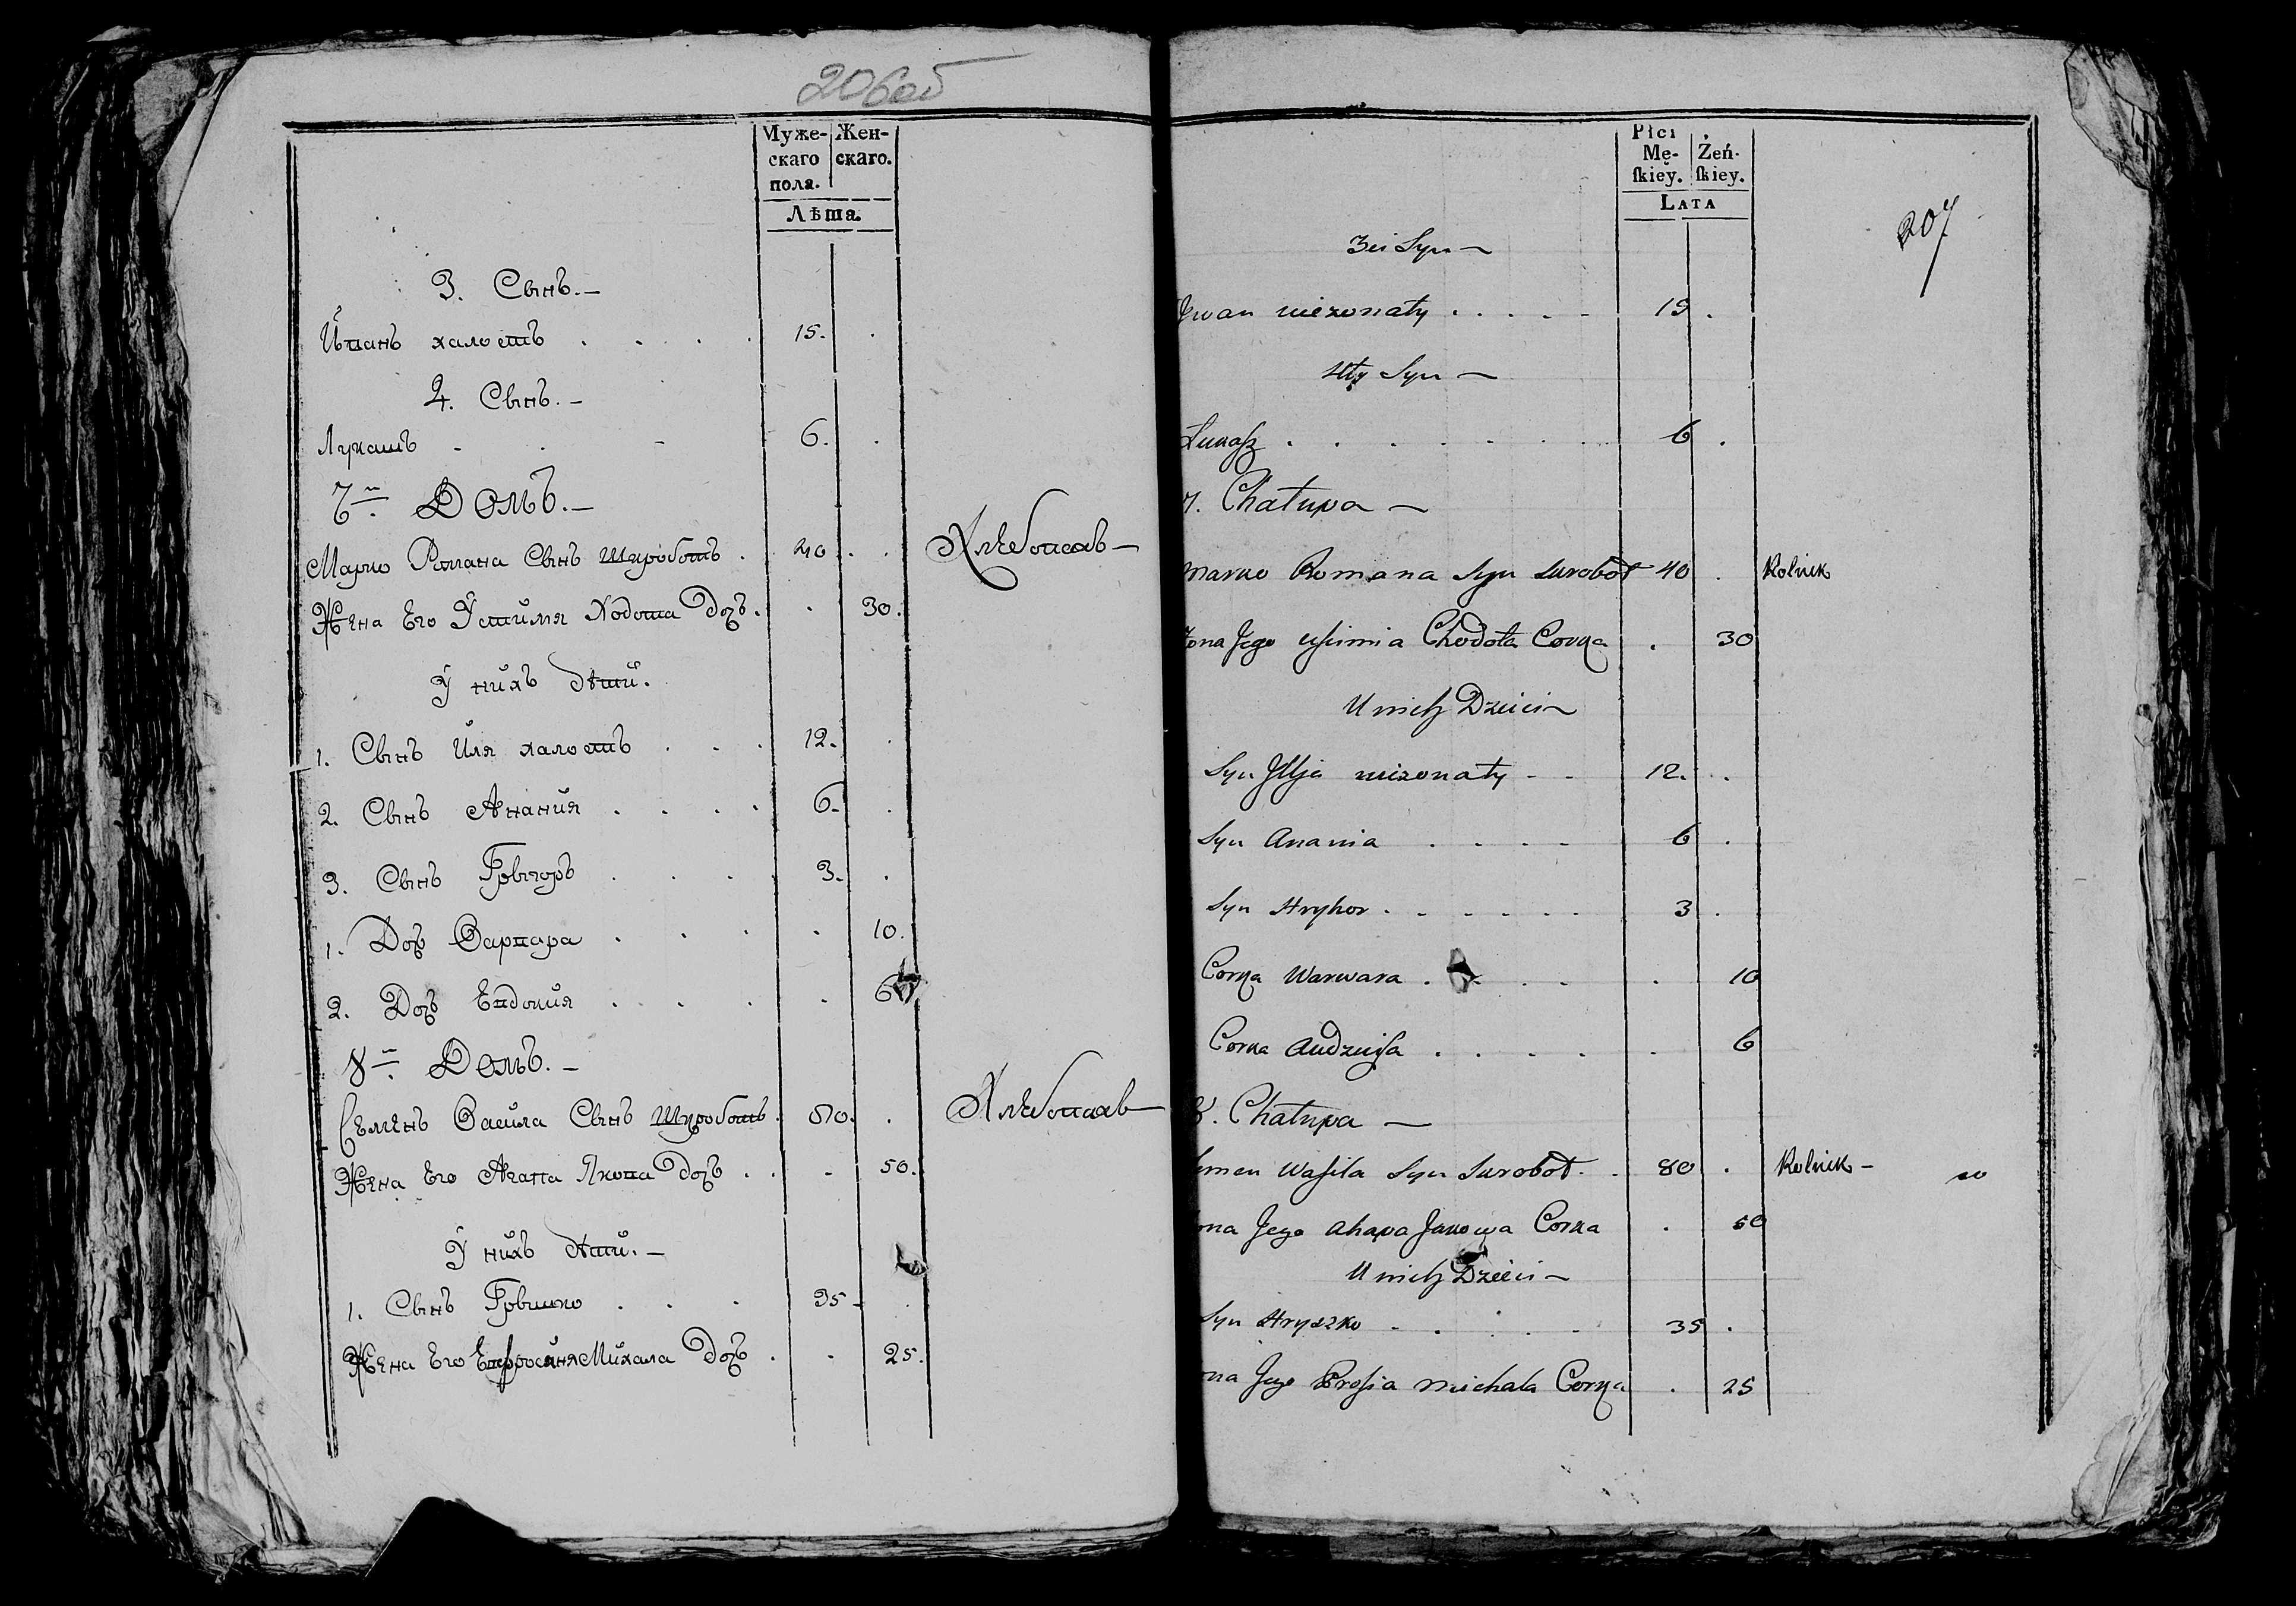 206об
Муже- Жен-
скаго скаго.
пола.
Лѣта.
3. Сынъ.—
Иванъ халостъ . . . . 15. .
4. Сынъ.—
Лукашъ - . - 6. .
7й. Домъ.—
Марко Романа Сынъ Шуроботъ . 40 . . Хлебопашъ—
Жена Его Устимия Ходота Дочъ . . 30.
У нихъ дѣти.
1. Сынъ Иля халостъ . . . 12. .
2. Сынъ Анания . . . . 6. .
3. Сынъ Грыгоръ . . . 3. .
1. Дочъ Варвара . . . . 10.
2. Дочъ Евдокия . . . . . 6
8й. Домъ.—
Семенъ Васила Сынъ Шуроботъ . 80. . Хлебопашъ—
Жена Его Агапа Якова Дочъ . . - 50.
У нихъ дѣти.—
1. Сынъ Грышко . . . 35 - .
Жена Его Ефросиня Михала Дочъ . - 25.
Płci
Mę- Żeń-
ſkiey. ſkiey.
LATA
207
3ci Syn —
Jwan niezonaty . . . . - 15 .
4ty Syn —
Łukaſz . . . . . . . 6 .
7. Chałupa —
Marko Romana Syn Surobot 40 . Rolnik
Zona Jego Uſtimia Chodota Corka . 30
U nich Dzieci —
Syn Jllja niezonaty - - 12. .
Syn Anania . . . - 6 .
Syn Hryhor . . . . . . 3 .
Corka Warwara . . . . . 10
Corka Audzieija . . . . . . 6
8. Chałupa —
emen Waſila Syn Surobot . . 80 . Rolnik —
ona Jego Ahapa Jakowa Corka . 50
U nich Dzieci —
Syn Hryszko - . . . - 35 .
ona Jego Proſia Michala Corka . 25